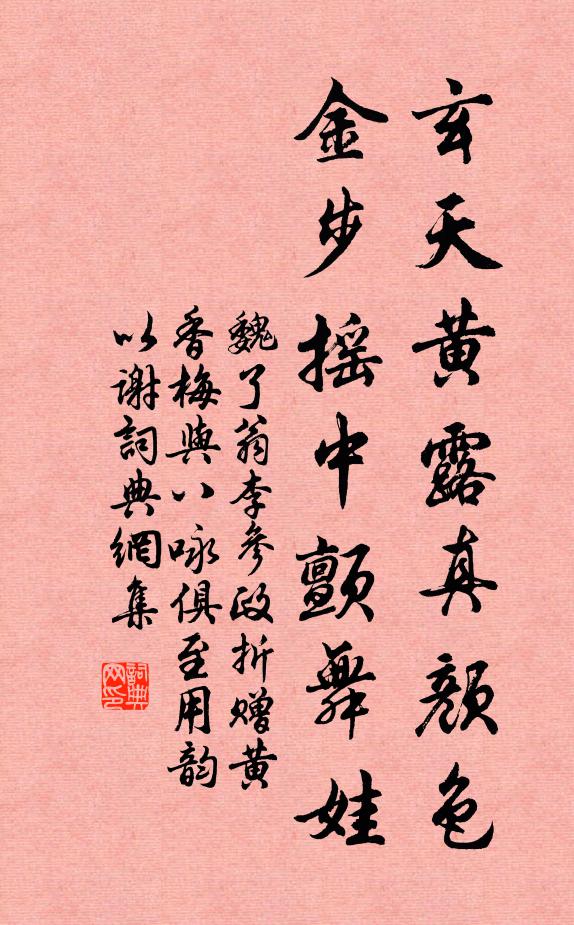 玄天黄露真顔色
金步摇中顫舞娃
魏了翁李參政折贈黄
香梅與八咏俱至用韵
以谢詞典網集
詞典网印